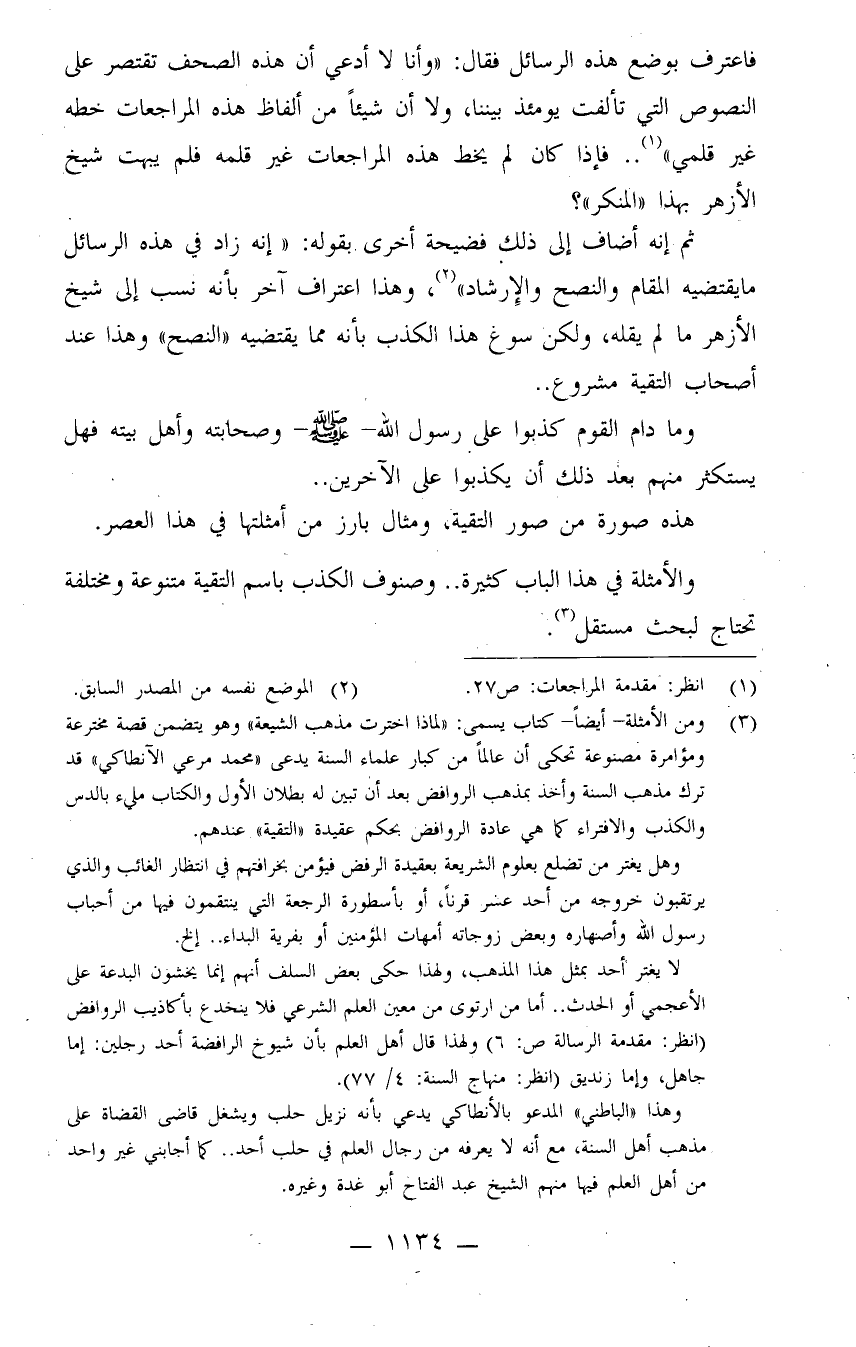 فاعترف بوضع هذه الرسائل فقال: «وأنا لا أدعي أن هذه الصحف تقتصر على
النصوص التي تألفت يومئذ بيننا، ولا أن شيئاً من ألفاظ هذه المراجعات خطه
غير قلمي»(١).. فإذا كان لم يخط هذه المراجعات غير قلمه فلم يبهت شيخ
الأزهر بهذا «المنكر»؟
ثم إنه أضاف إلى ذلك فضيحة أخرى بقوله: « إنه زاد في هذه الرسائل
مايقتضيه المقام والنصح والإرشاد»(٢)، وهذا اعتراف آخر بأنه نسب إلى شيخ
الأزهر ما لم يقله، ولكن سوغ هذا الكذب بأنه مما يقتضيه «النصح» وهذا عند
أصحاب التقية مشروع..
وما دام القوم كذبوا على رسول الله – ﷺ – وصحابته وأهل بيته فهل
يستكثر منهم بعد ذلك أن يكذبوا على الآخرين..
هذه صورة من صور التقية، ومثال بارز من أمثلتها في هذا العصر.
والأمثلة في هذا الباب كثيرة.. وصنوف الكذب باسم التقية متنوعة ومختلفة
تحتاج لبحث مستقل(٣).
(١) انظر: مقدمة المراجعات: ص٢٧. (٢) الموضع نفسه من المصدر السابق.
(٣) ومن الأمثلة – أيضاً – كتاب يسمى: «لماذا اخترت مذهب الشيعة» وهو يتضمن قصة مخترعة
ومؤامرة مصنوعة تحكى أن عالماً من كبار علماء السنة يدعى «محمد مرعي الآنطاكي» قد
ترك مذهب السنة وأخذ بمذهب الروافض بعد أن تبين له بطلان الأول والكتاب مليء بالدس
والكذب والافتراء كما هي عادة الروافض بحكم عقيدة «التقية» عندهم.
وهل يغتر من تضلع بعلوم الشريعة بعقيدة الرفض فيؤمن بخرافتهم في انتظار الغائب والذي
يرتقبون خروجه من أحد عشر قرناً، أو بأسطورة الرجعة التي ينتقمون فيها من أحباب
رسول الله وأصهاره وبعض زوجاته أمهات المؤمنين أو بفرية البداء.. إلخ.
لا يغتر أحد بمثل هذا المذهب، ولهذا حكى بعض السلف أنهم إنما يخشون البدعة على
الأعجمي أو الحدث.. أما من ارتوى من معين العلم الشرعي فلا ينخدع بأكاذيب الروافض
(انظر: مقدمة الرسالة ص: ٦) ولهذا قال أهل العلم بأن شيوخ الرافضة أحد رجلين: إما
جاهل، وإما زنديق (انظر: منهاج السنة: ٤/ ٧٧).
وهذا «الباطني» المدعو بالأنطاكي يدعي بأنه نزيل حلب ويشغل قاضى القضاة على
مذهب أهل السنة، مع أنه لا يعرفه من رجال العلم في حلب أحد.. كما أجابني غير واحد
من أهل العلم فيها منهم الشيخ عبد الفتاح أبو غدة وغيره.
– ١١٣٤ –